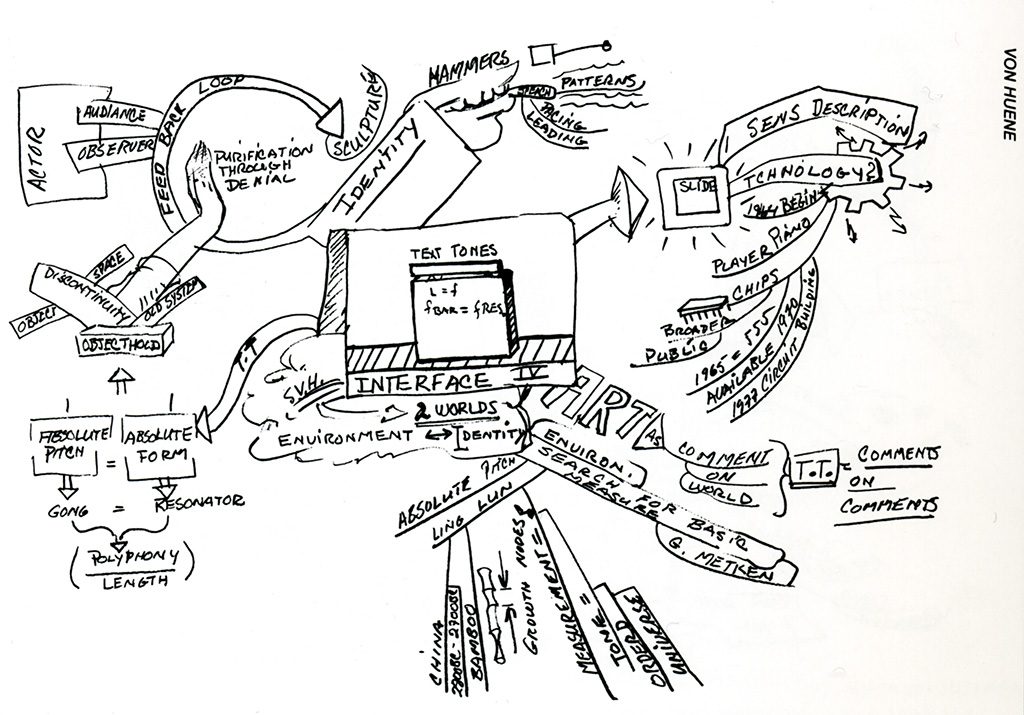 VON HUENE
ACTOR
AUDIANCE
OBSERVER
FEED BACK LOOP
SCULPTURE
PURIFICATION
THROUGH
DENIAL
IDENTITY
HAMMERS
SPEACH
PATTERNS
PACING
LEADING
SLIDE
SENS DESCRIPTION
TCHNOLOGY?
1964 BEGIN
PLAYER PIANO
CHIPS
BROADER
PUBLIC
1965 = 555
AVAILABLE 1970
1977 CIRCUIT
BUILDING
DISCONTINUIM
OBJECT
SPACE
OLD SYSTEM
OBJECTHOLD
TEXT TONES
L = f
f BAR = f RES
INTERFACE IV
T.T
S.V.H.
2 WORLDS
ENVIRONMENT ↔ IDENTITY
ABSOLUTE
PITCH
=
ABSOLUTE
FORM
GONG = RESONATOR
(POLYPHONY
LENGTH)
ART
AS
COMMENT
ON
WORLD
T.T. = COMMENTS
ON
COMMENTS
ENVIRON.
SEARCH FOR BASIC
MEASURE
G. METKEN
ABSOLUTE PITCH
LING LUN
CHINA
BAMBOO
GROWTH NODES?
MEASUREMENT =
MEASURE =
TONE
ORDERD
UNIVERSE